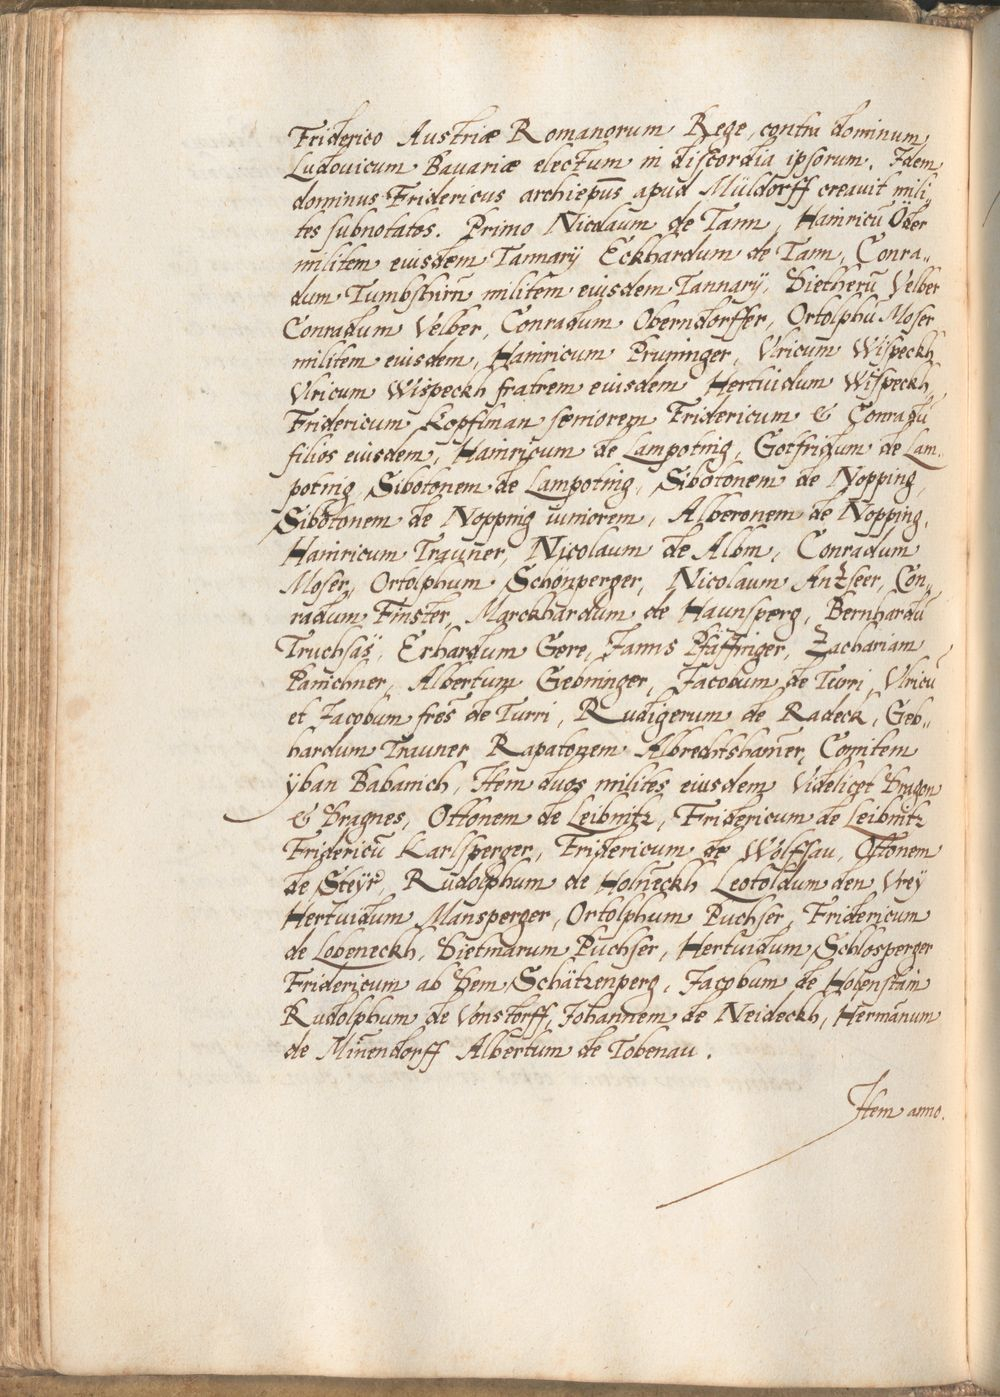 Friderico Austriæ Romanorum Rege, contra dominum
Ludovicum Bavariæ electum in discordia ipsorum. Idem
dominus Fridericus archiepūs apud Müldorff creavit mili„
tes subnotatos. Primo Nicolaum de Tann, Hainricū Öder
militem eiusdem Tannarÿ Eckhardum de Tann, Conra„
dum Tumbshirn militem eiusdem Tannarÿ, Dietherū Velber
Conradum Velber, Conradum Oberndorffer, Ortolphū Moser
militem eiusdem, Hainricum Pruninger, Vlricum Wispeckh
Vlricum Wispeckh fratrem eiusdem Hertuidum Wispeckh,
Fridericum Kopfsman seniorem Fridericum & Conradū
filios eiusdem, Hainricum de Lampoting, Gotfridum de Lam„
poting, Sibotonem de Lampoting, Sibotonem de Nopping,
Sibotonem de Nopping iuniorem, Alberonem de Nopping,
Hainricum Trauner, Nicolaum de Albm, Conradum
Moser, Ortolphum Schönperger, Nicolaum Antzseer, Con„
radum Finster, Marckhardum de Haunsperg, Bernhardū
Truchsäs, Erhardum Gere, Janns Pfäffinger, Zachariam
Panichner, Albertum Gebninger, Jacobum de Turri, Vlricū
et Jacobum fres̄ de Turri, Rudigerum de Radeck, Geb„
hardum Trauner Rapatonem Albrechtshamer, Comitem
ÿban Babanich, Item duos milites eiusdem Videlicet Dragon
& Dragnes, Ottonem de Leibnitz, Fridericum de Leibnitz
Fridericū Karlsperger, Fridericum de Wolfsau, Ottonem
de Steÿr, Rudolphum de Holneckh Leotoldum den Vreÿ
Hertuidum Mansperger, Ortolphum Puchser, Fridericum
de Lobeneckh, Dietmarum Puchser, Hertuidum Schlosperger
Fridericum ab Dem Schätzenperg, Jacobum de Holenstain
Rudolphum de Vonstorff, Johannem de Neideckh, Hermānum
de Minendorff Albertum de Tobenau.
Item anno.